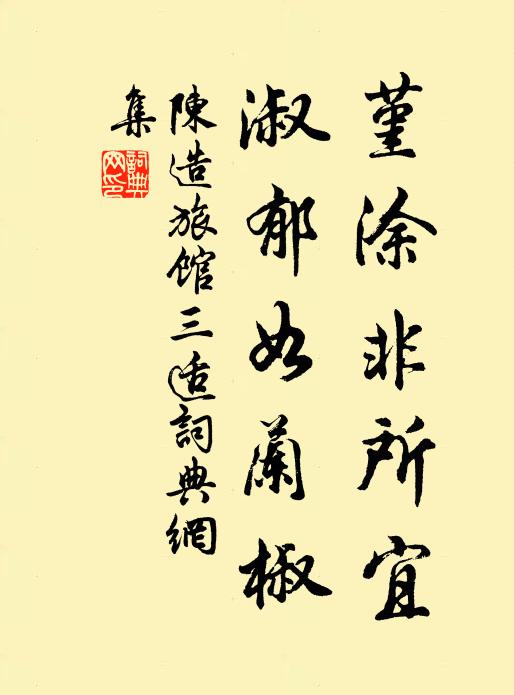 堇涂非所宜
淑郁如蘭椒
陳造旅館三适詞典網
集
詞典网印